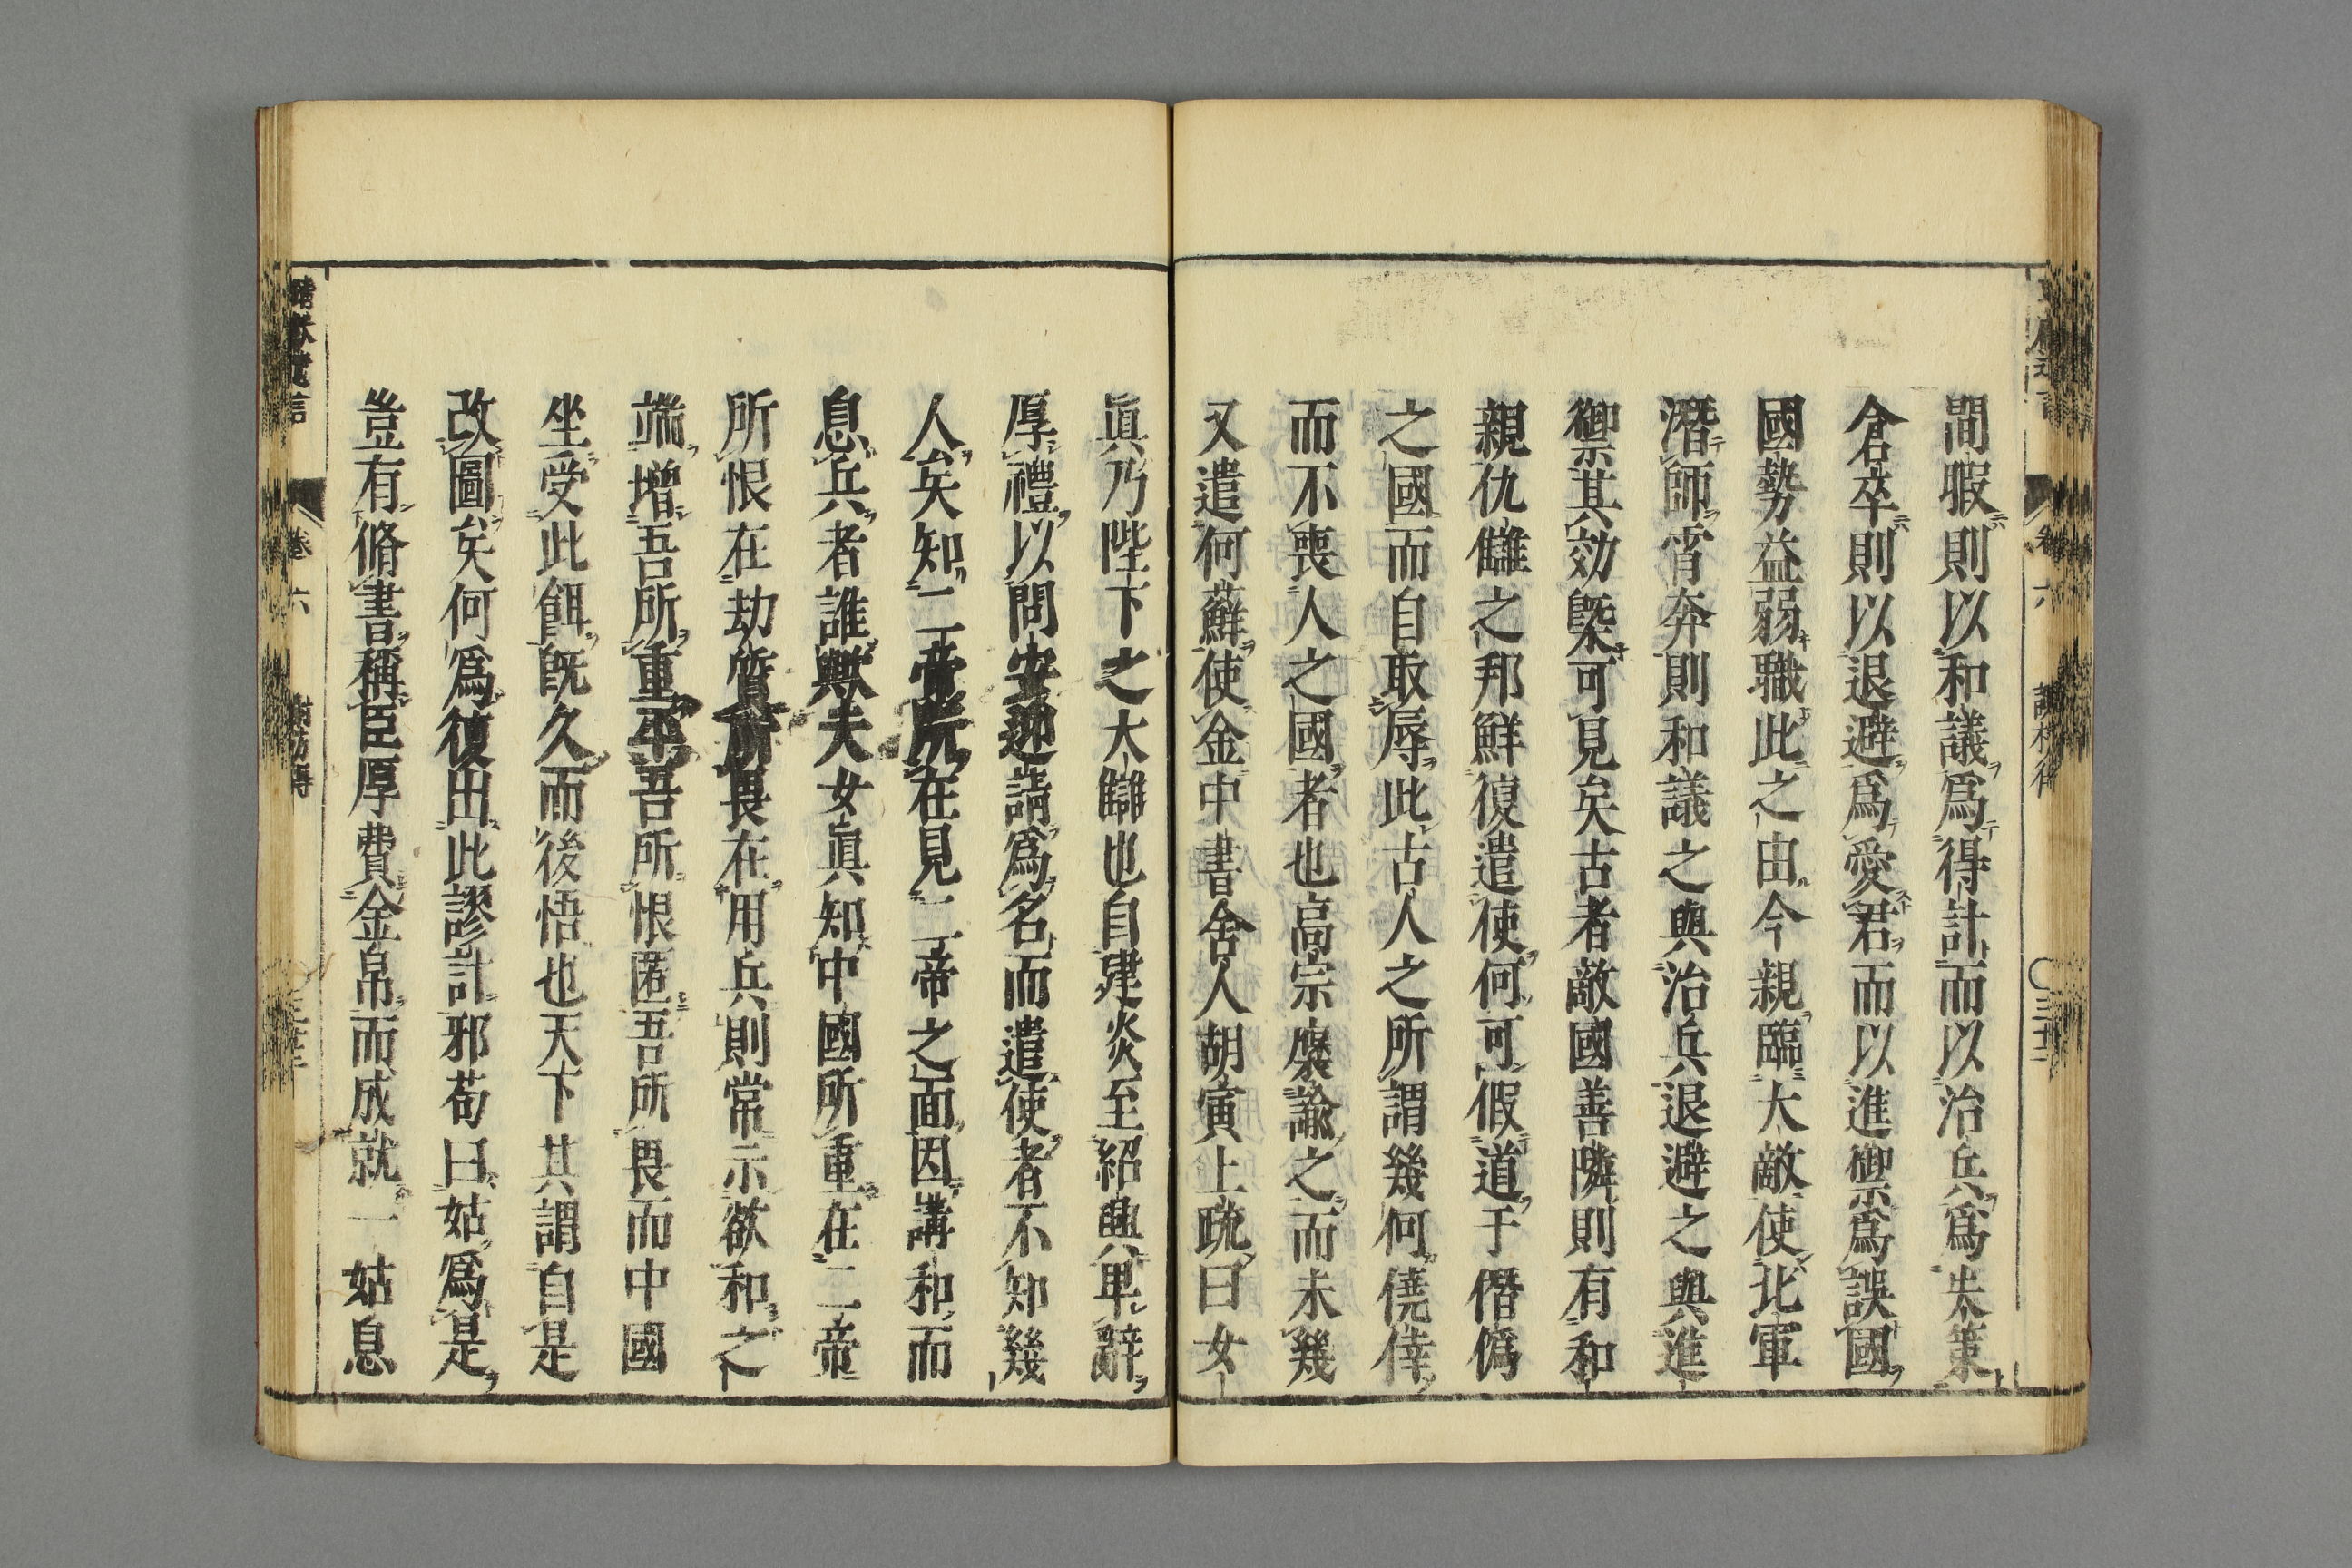 間暇則以和議爲得計而以治兵爲失策
倉卒則以退避爲愛君而以進禦爲誤國
國勢益弱職此之由今親臨大敵使北軍
潛師宵奔則和議之與治兵退避之與進
禦其効槩可見矣古者敵國善隣則有和
親仇讎之邦鮮復遣使何可假道于僭僞
之國而自取辱此古人之所謂幾何僥倖
而不喪人之國者也高宗襃諭之而未幾
又遣何蘚使金中書舍人胡寅上疏曰女
眞乃陛下之大讎也自建炎至紹興卑辭
厚禮以問安迎請爲名而遣使者不知幾
人矣知二帝所在見二帝之面因講和而
息兵者誰歟夫女眞知中國所重在二帝
所恨在劫質所畏在用兵則常示欲和之
端增吾所重平吾所恨匿吾所畏而中國
坐受此餌既久而後悟也天下其謂自是
改圖矣何爲復出此謬計邪苟曰姑爲是
豈有脩書稱臣厚費金帛而成就一姑息
卷六